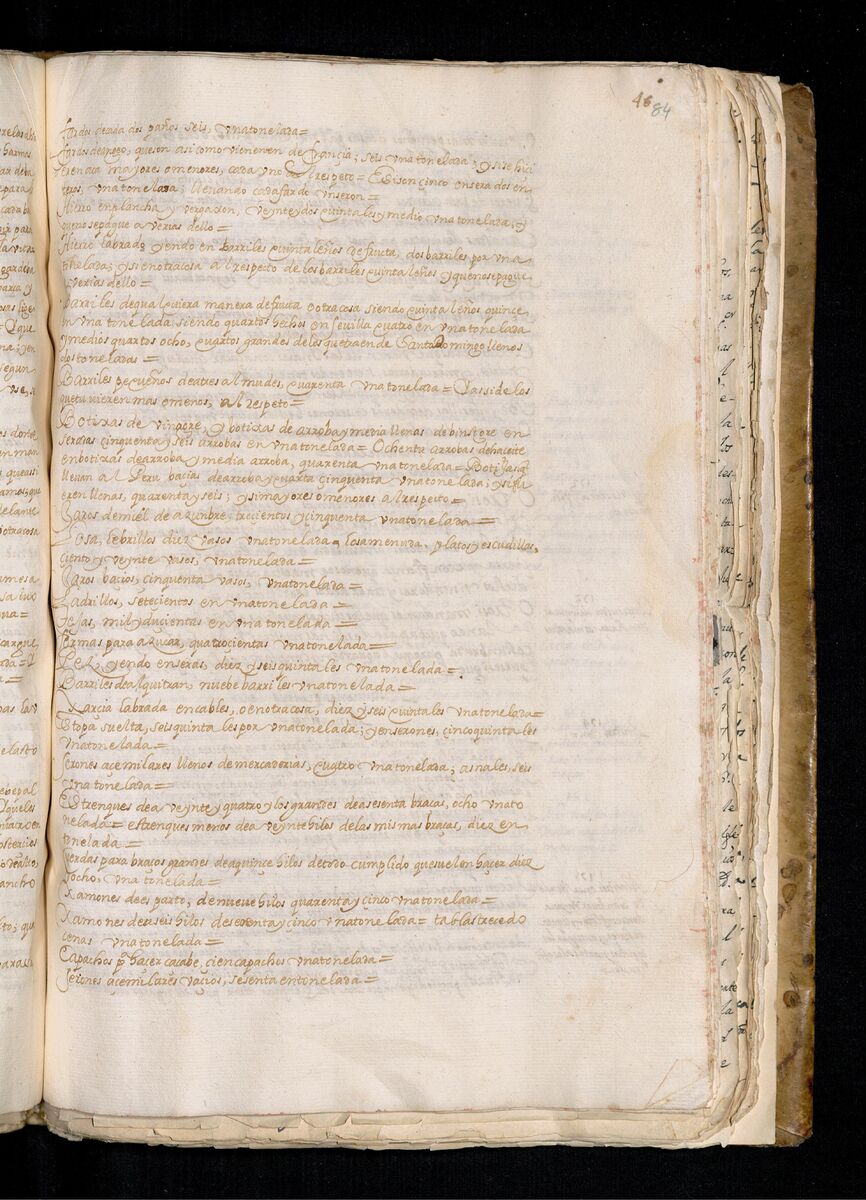 46 84
fardos de cada dos paños seis, vna tonelada =
fardos de angeo, que son asi como vienen en de françia, seis vna tonelada; y si se hici
eren aca mayores o menores, cada vno al respeto = Edison çinco en sera dos en
teros, vna tonelada; lleuando cada fardo vn seron =
Hierro en plancha y vergaxon, veynte y dos quintales y medio vna tonelada, y
que no se pague averias dello =
Hierro labrado yendo en barriles quintaleños de fruta, dos barriles por vna
tonelada; y si en otra cosa al respeto de los barriles quintaleños y que no se pague
averias dello =
Barriles de qualquiera manera de fruta o otra cosa siendo quintaleños quince
en vna tonelada, siendo quartos hechos en seuilla quatro en vna tonelada
y medios quartos ocho, quartos grandes de les que traen de Santo Domingo llenos
dos toneladas =
Barriles pequeños de a tres almudes, quarenta vna tonelada = Y assi de los
que tuuieren mas o menos, al respeto =
Botixas de vinagre, y botixas de arroba y media llenas de binagre en
seradas cinquenta y seis arrobas en vna tonelada = Ochenta arrobas de haceite
en botixas de arroba y media arroba, quarenta vna tonelada = Botijas que
lleuan al Peru bacias de arroba y quarta cinquenta vna tonelada; y si fu
eren llenas, quarenta y seis; y si mayores o menores al respeto =
Vasos de miel de açunbre, trecientos y cinquenta vna tonelada =
Losa, lebrillos diez vasos vna tonelada = Losa menuda, platos y escudillas,
ciento y veynte vasos, vna tonelada =
Vasos baçios, cinquenta vasos, vna tonelada =
Ladrillos, setecientos en vna tonelada =
Tejas, mil y ducientas en vna tonelada =
formas para açucar, quatrocientas vna tonelada =
Pez, yendo en seras, diez y seis quintales vna tonelada =
Barriles de alquitran, nuebe barriles vna tonelada =
Xarcia labrada en cables, o en otra cosa, diez y seis quintales vna tonelada =
Estopa suelta, seis quintales por vna tonelada; y en serones, cinco quintales
vna tonelada =
Serones açemilares llenos de mercaderias, quatro vna tonelada; asnales, seis
vna tonelada =
Estrenques de a veynte y quatro y los grandes de a sesenta braças, ocho vna to
nelada = estrenques menos de a veynte hilos de las mismas braças, diez en
tonelada =
Cuerdas para braços grandes de a quince hilos de todo cumplido que suelen haçer diez
y ocho, vna tonelada =
Xamones de esparto, de nueue hilos quarenta y cinco vna tonelada =
Xamones de a seis hilos de sesenta y cinco vna tonelada = tablas trece do
cenas vna tonelada =
Capachos pa haçer caçabe, cien capachos vna tonelada =
Serones açemilares vaçios, sesenta en tonelada =